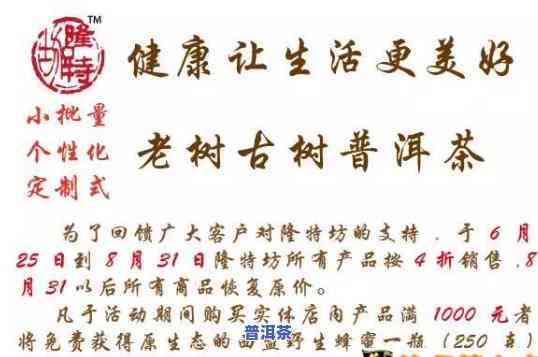 隆特坊
TM
健康让生活更美好
小批量
个性化
定制式
老树古树普洱茶
为了回馈广大客户对隆特坊的支持，于 6 月
25 日到 8 月 31 日隆特坊所有产品按 4 折销售，8
月 31 以后所有商品恢复原价。
凡于活动期间购买实体店内产品满 1000 元者
将免费获得原生态的西盟野生蜂蜜一瓶（250 克）
普洱茶